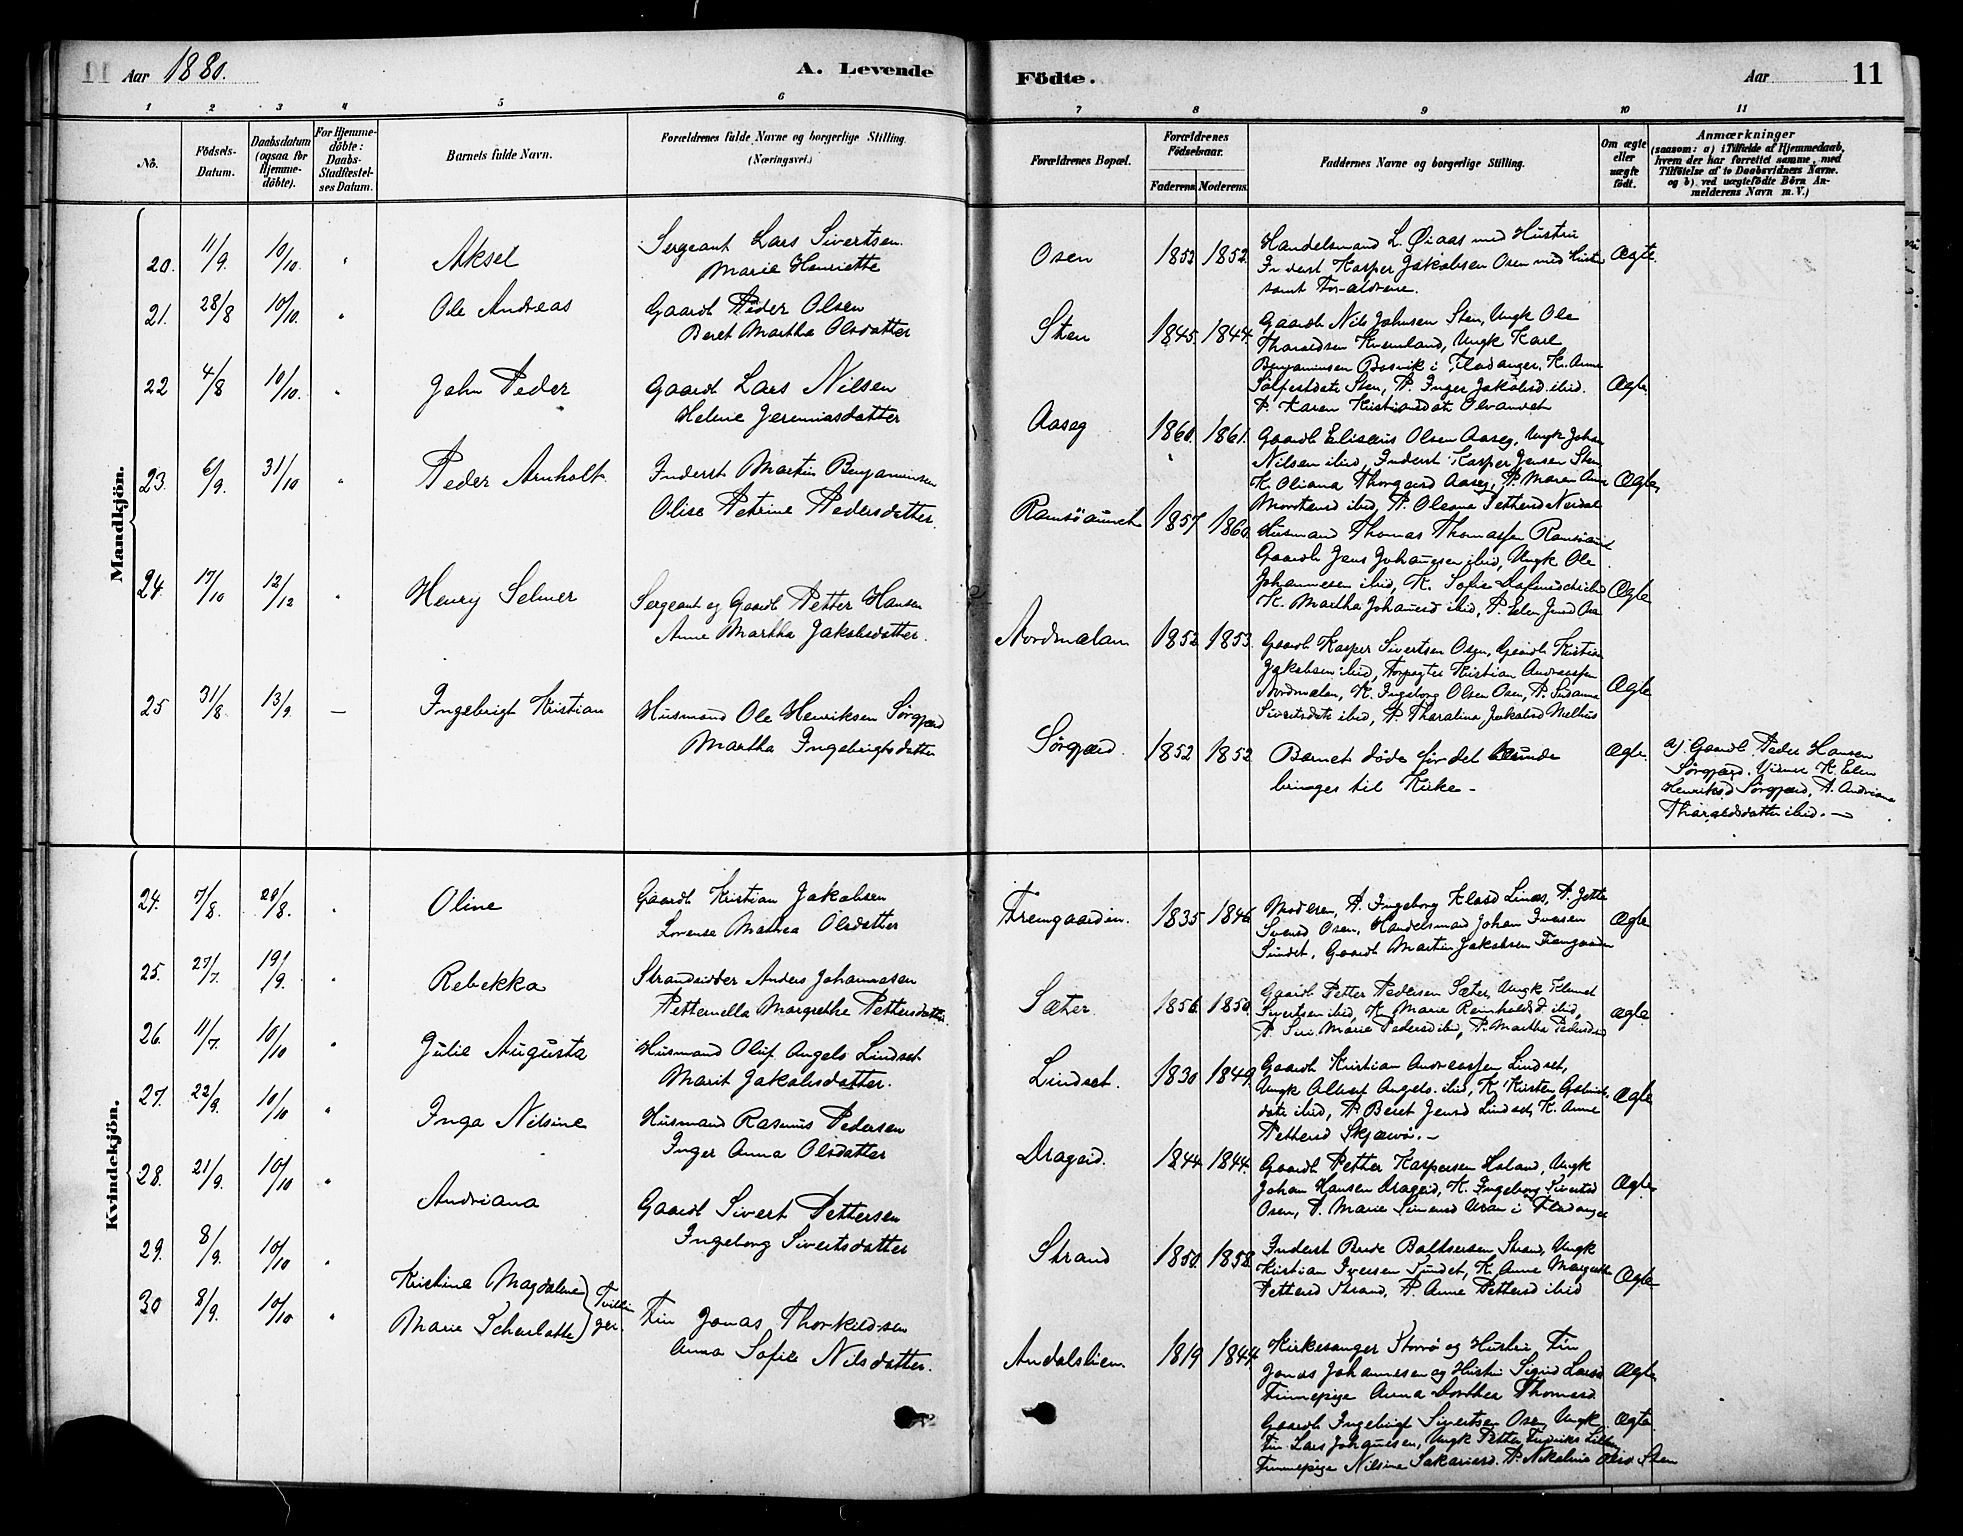 11 Aar 1880. A. Levende Fødte. Aar 11
1 2 3 4 5 6 7 8 9 10 11
No.
Fødsels-Datum.
Daabsdatum (ogsaa for Hjemme-døbte).
For Hjemme-døbte: Daabs-Stadfestel-ses Datum.
Barnets fulde Navn.
Forældrenes fulde Navne og borgerlige Stilling.
(Næringsvei.)
Forældrenes Bopæl.
Forældrenes Fødselsaar.
Faderens Moderens.
Faddernes Navne og borgerlige Stilling.
Om ægte eller uægte født.
Anmærkninger
(saasom: a) i Tilfælde af Hjemmedaab,
hvem der har forrettet samme, med
Tilføielse af to Daabsvidners Navne.
og b) ved uægtefødte Børn An-
melderens Navn m.V.)
Mandkjön.
20. 11/9. 10/10. " Aksel
Sergeant Lars Sivertsen
Marie Henriette
Osen 1853 1852.
Handelsmand L. Øiaas med Hustru
Inderst Kasper Jakobsen Osen med Hustru
samt Forældrene.
Ægte.
21. 28/8 10/10. " Ole Andreas
Gaardb Peder Olsen
Beret Martha Olsdatter
Sten 1845. 1844.
Gaardb Nils Johnsen Sten, Ungk Ole
Tharaldsen Kvernland, Ungk Karl
Benjaminsen Bosvik i Fladanger, K. Anne
Sten, P. Inger Jakobsd. ibid.
P. Karen Kristiansdatr
Ægte
22 4/8 10/10. " John Peder
Gaardb Lars Nilsen
Helene Jeremiasdatter
Aaseg 1860. 1861.
Gaardb Eliseus Olsen Aaseg, Ungk Johan
Nilsen ibid, Inderst Kasper Jensen Sten
K. Oliana Thorgaard Aaseg, P. Maren Anna
ibid, P. Oleana Pettersd
Ægte
23. 6/9. 31/10 " Peder Arnholt
Inderst Martin Benjaminsen
Olise Petrine Pedersdatter.
Ramsøaunet 1857 1860.
Husmand Thomas Thomassen Ramsøaunet
Gaardb Jens Johansen ibid, Ungk Ole
Johannesen ibid, K. Sofie ibid
K. Martha Johansd ibid, P. Elen Jensd Osen
Ægte
24. 17/10 12/12 " Henry Selmer
Sergeant og Gaardb Petter Hansen
Anne Martha Jakobsdatter.
Nordmælan 1852 1853.
Gaardb Kasper Sivertsen Osen, Gaardb Kristian
Jakobsen ibid, Forpagter Kristian Andreassen
Nordmælan, K. Ingeborg Olsen Osen, P. Susanna
Sivertsdatr ibid, P. Tharalina Jakobsd Melhus
Ægte
25 31/8. 13/9 — Ingebrigt Kristian
Husmand Ole Henriksen Sørgjerd
Martha Ingebrigtsdatter
Sørgjerd. 1852 1852
Barnet døde før det kunde
bringes til Kirke -
Ægte.
a). Gaardb Peder Hansen
Sørgjerd. Vidner K. Elen
Henriksd Sørgjerd, P. Andriana
Tharaldsdatter ibid. —
Kvindekjön.
24. 7/8. 29/8. " Oline
Gaardb Kristian Jakobsen
Lorense Mathea Olsdatter
Fremgaarden. 1835 1846
Moderen, P. Ingeborg Olasd P. Jette
Osen, Handelsmand Johan Iversen
Sundet, Gaardb Martin Jakobsen Fremgaarden
Ægte
25. 27/7. 19/9. " Rebekka
Strandsidder Anders Johannesen
Petternella Margrethe Pettersdatter.
Sæter. 1856 1850.
Gaardb Petter Pedersen Sæter, Ungk
Sivertsen ibid, K. Marie Reinholdsd. ibid,
P. Siri Marie Pedersd ibid, P. Martha Pedersd ibid
Ægte
26. 11/7. 10/10 " Julie Augusta
Husmand Oluf Angels Lindset
Marit Jakobsdatter.
Lindset. 1830 1849.
Gaardb Kristian Andreassen Lindset,
Ungk Albert Angels. ibid, K. Kirsten
datr ibid, P. Beret Jensd Lindset, K. Anne
Pettersd Skjærvø. —
Ægte
27. 22/9. 10/10 " Inga Nilsine
Husmand Rasmus Pedersen
Inger Anna Olsdatter
Drageid. 1844 1844.
Gaardb Petter Kaspersen Høland, Ungk
Johan Hansen Drageid, K. Ingeborg Sivertsd
Osen, P. Marie Simonsd i Fladanger
Ægte
28. 21/9. 10/10 " Andriana
Gaardb Sivert Pettersen
Ingeborg Sivertsdatter
Strand 1850. 1858
Inderst Baltsersen Strand, Ungk
Kristian Iversen Sundet, K. Anne Margrethe
Pettersd Strand, P. Anne Pettersd ibid
Ægte
29. 8/9. 10/10 " Kristine Magdalene
30 8/9. 10/10 " Marie Scharlotte
Tvillin-
ger.
Fin Jonas Thorkildsen
Anna Sofie Nilsdatter.
Andalslien. 1819 1844
Kirkesanger Storrø og Hustru, Fin
Jonas Johannesen og Hustru Sigrid Larsd
Finnepige Anna Dorthea Thomasd.
Ægte
Gaardb Ingebrigt Sivertsen Osen, Ungk.
Fin Lars Johannesen, Ungk Petter Fredriks
Finnepige Nilsine Sakariasd. P. Nikolina Olsd. Sten
Ægte